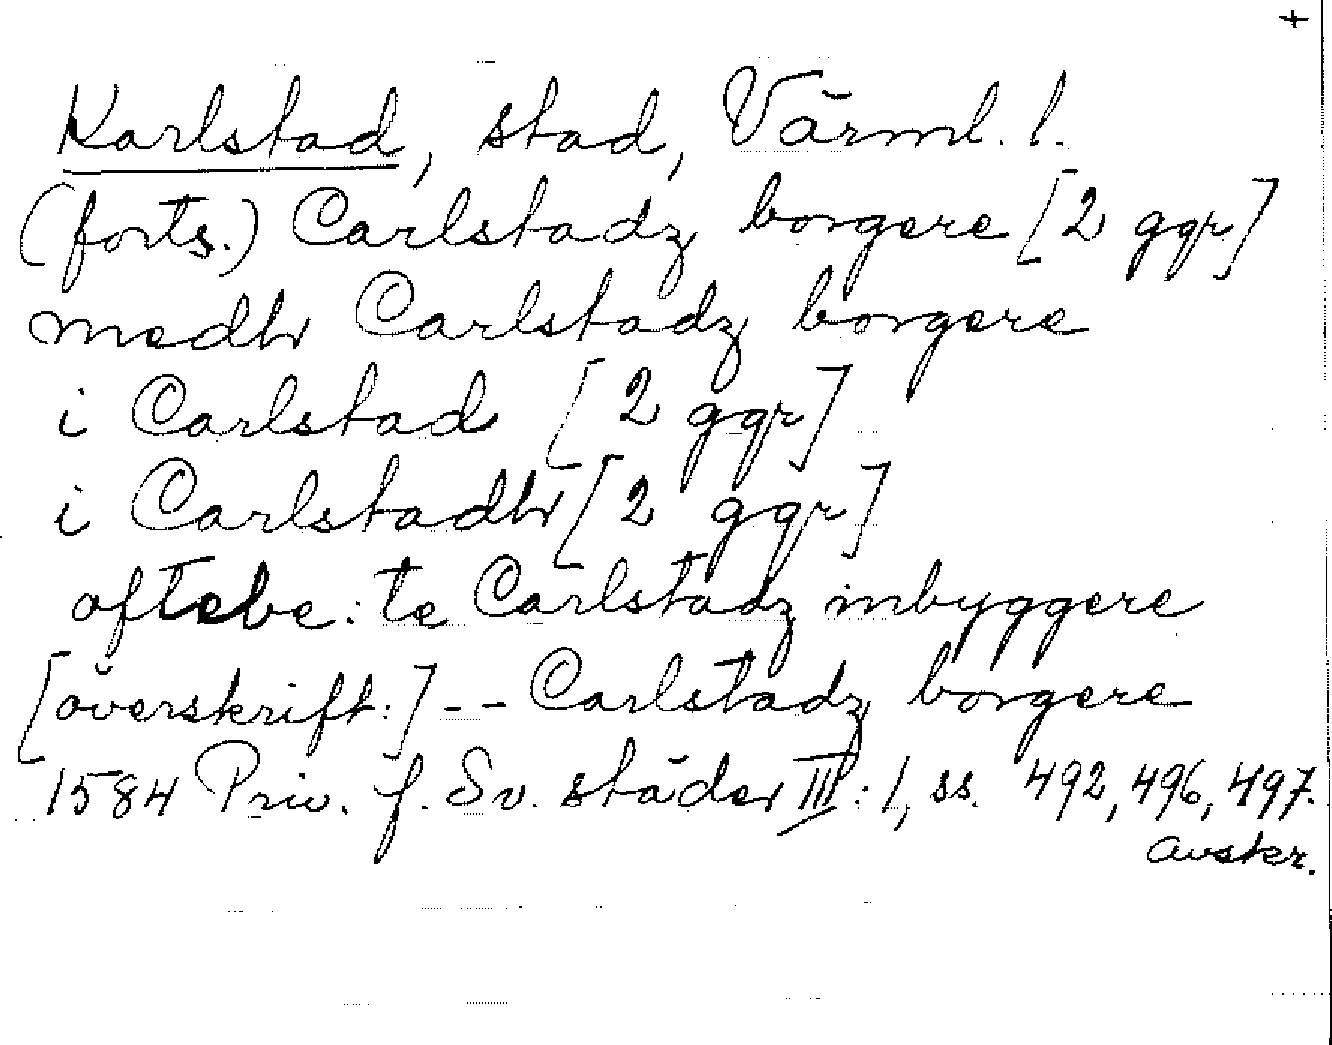 +
Karlstad, stad, Värml. l.
(forts.) Carlstadz borgere [2 ggr]
medh Carlstadz borgere
i Carlstad [2 ggr]
i Carlstadh [2 ggr]
ofte:te Carlstadz inbyggere
[överskrift:] -- Carlstadz borgere
1584 Priv. f. Sv. städer III: 1, ss. 492, 496, 497.
avskr.